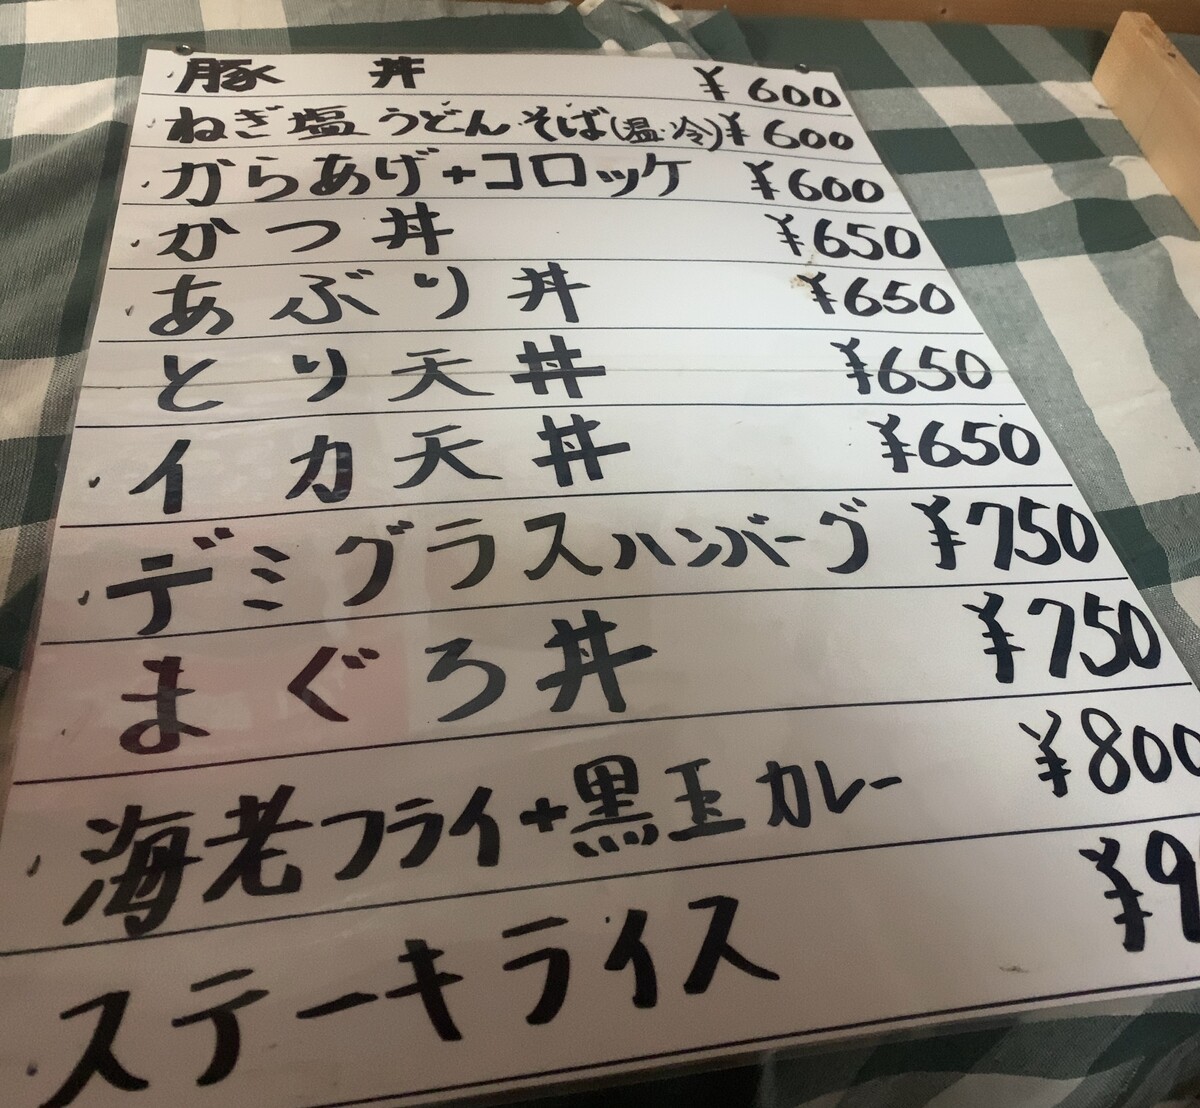 豚丼 ¥600
ねぎ塩うどんそば(温・冷) ¥600
からあげ+コロッケ ¥600
かつ丼 ¥650
あぶり丼 ¥650
とり天丼 ¥650
イカ天丼 ¥650
デミグラスハンバーグ ¥750
まぐろ丼 ¥750
海老フライ+黒玉カレー ¥800
ステーキライス ¥9